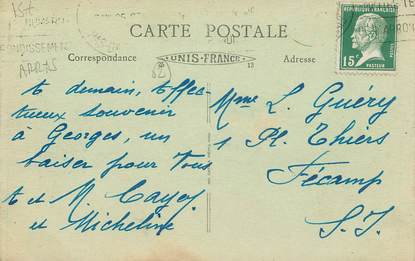 CARTE POSTALE
Correspondance
UNIS-FRANCE
Adresse
REPUBLIQUE FRANÇAISE
15c
PASTEUR
ARRAS
à demain, Affec-
tueux souvenir
à Georges, un
baiser pour tous
et M. Cayey
et Micheline
Mme L. Guéry
1 Pl. Thiers
Fécamp
S. I.